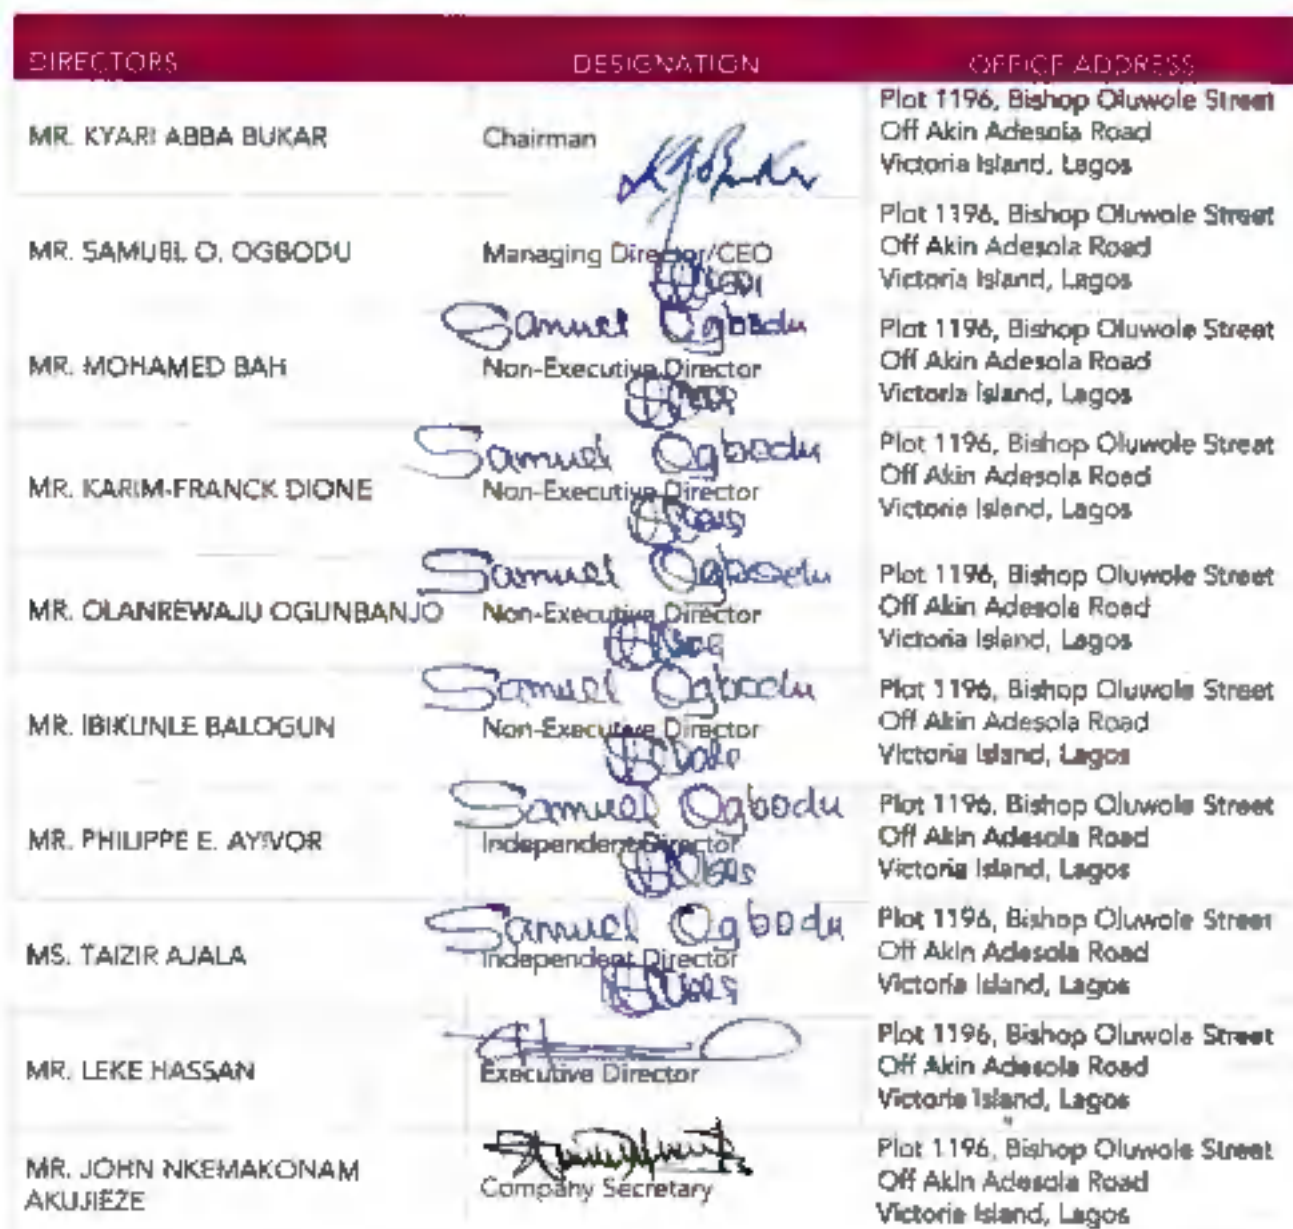 DIRECTORS DESIGNATION OFFICE ADDRESS
MR. KYARI ABBA BUKAR Chairman Plot 1196, Bishop Oluwole Street
Off Akin Adesola Road
Victoria Island, Lagos
MR. SAMUEL O. OGBODU Managing Director/CEO Plot 1196, Bishop Oluwole Street
Off Akin Adesola Road
Victoria Island, Lagos
Samuel Ogbodu
MR. MOHAMED BAH Non-Executive Director Plot 1196, Bishop Oluwole Street
Off Akin Adesola Road
Victoria Island, Lagos
Samuel Ogbodu
MR. KARIM-FRANCK DIONE Non-Executive Director Plot 1196, Bishop Oluwole Street
Off Akin Adesola Road
Victoria Island, Lagos
Samuel Ogbodu
MR. OLANREWAJU OGUNBANJO Non-Executive Director Plot 1196, Bishop Oluwole Street
Off Akin Adesola Road
Victoria Island, Lagos
Samuel Ogbodu
MR. IBIKUNLE BALOGUN Non-Executive Director Plot 1196, Bishop Oluwole Street
Off Akin Adesola Road
Victoria Island, Lagos
Samuel Ogbodu
MR. PHILIPPE E. AYIVOR Independent Director Plot 1196, Bishop Oluwole Street
Off Akin Adesola Road
Victoria Island, Lagos
Samuel Ogbodu
MS. TAIZIR AJALA Independent Director Plot 1196, Bishop Oluwole Street
Off Akin Adesola Road
Victoria Island, Lagos
MR. LEKE HASSAN Executive Director Plot 1196, Bishop Oluwole Street
Off Akin Adesola Road
Victoria Island, Lagos
MR. JOHN NKEMAKONAM
AKUJIEZE Company Secretary Plot 1196, Bishop Oluwole Street
Off Akin Adesola Road
Victoria Island, Lagos